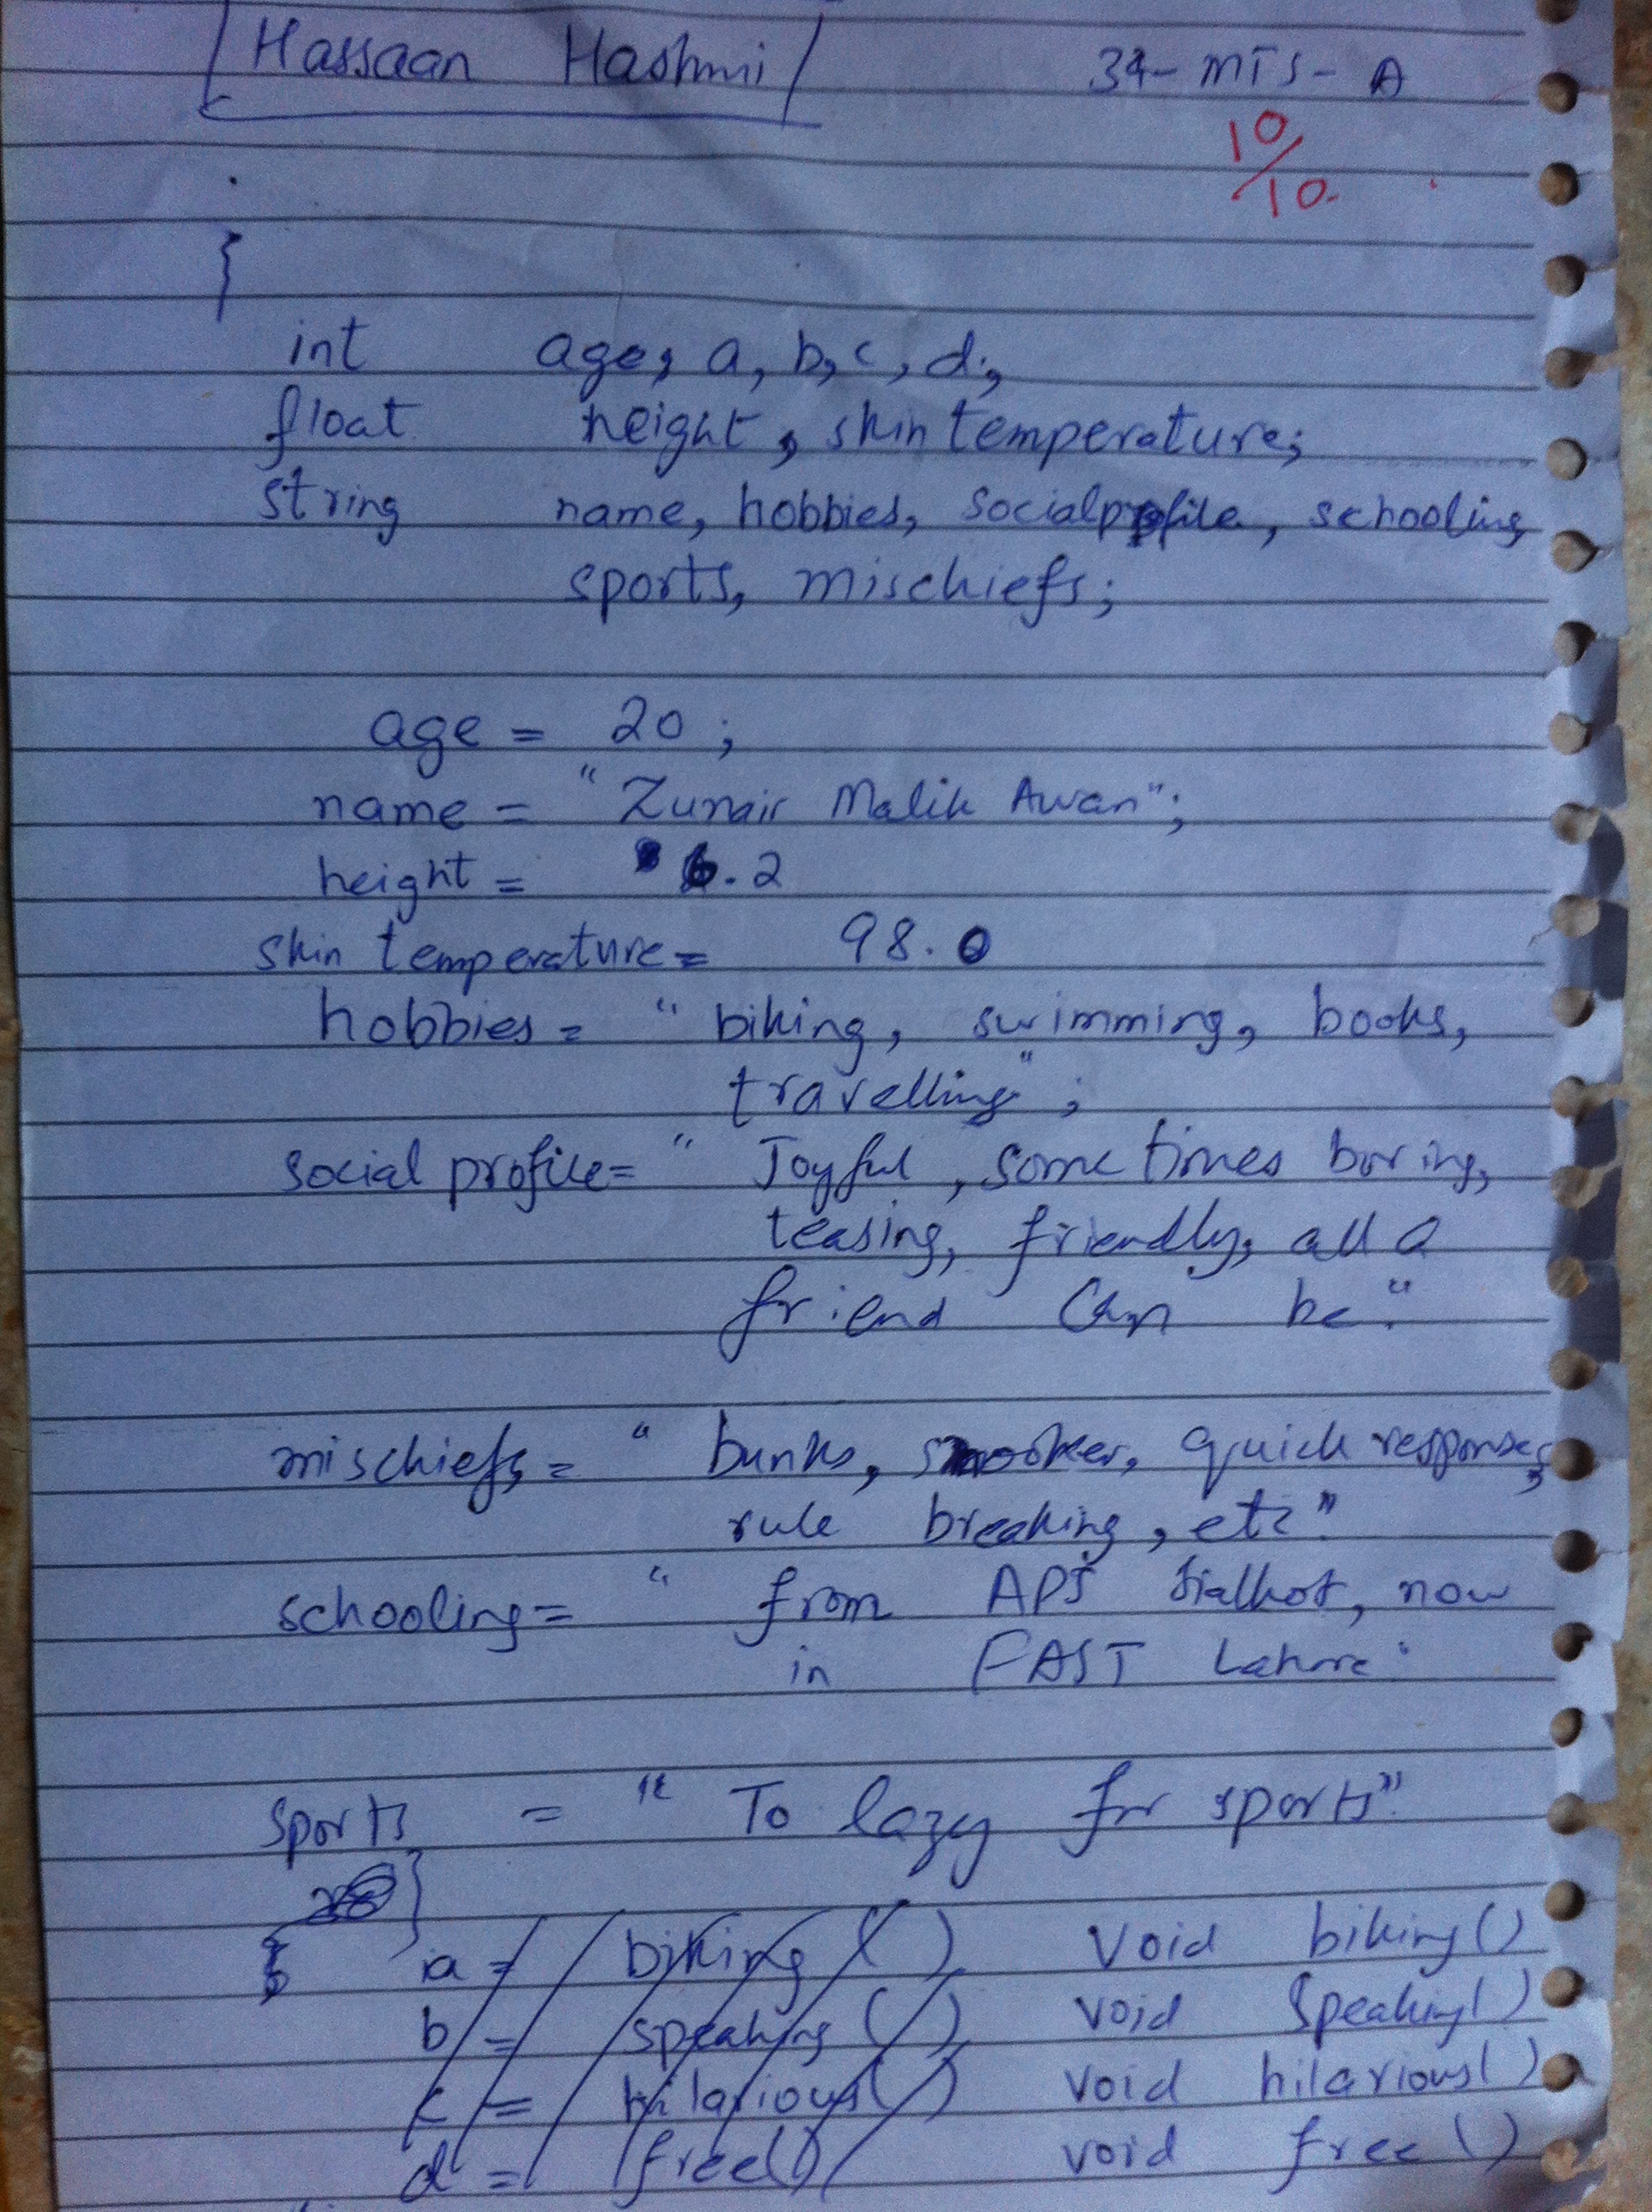 Hassaan Hashmi 34-MTS-A
10/10
{
int age, a, b, c, d;
float height, skin temperature;
string name, hobbies, socialprofile, schooling,
sports, mischiefs;
age = 20;
name = "Zunair Malik Awan";
height = 6.2
skin temperature = 98.0
hobbies = "biking, swimming, books,
travelling";
social profile = "Joyful, sometimes boring,
teasing, friendly, all a
friend can be."
mischiefs = "bunks, smoker, quick response,
rule breaking, etc"
schooling = "from APS Sialkot, now
in FAST Lahore"
sports = "To lazy for sports"
}
{ a = biking() void biking()
b = speaking() void speaking()
c = hilarious() void hilarious()
d = free() void free()